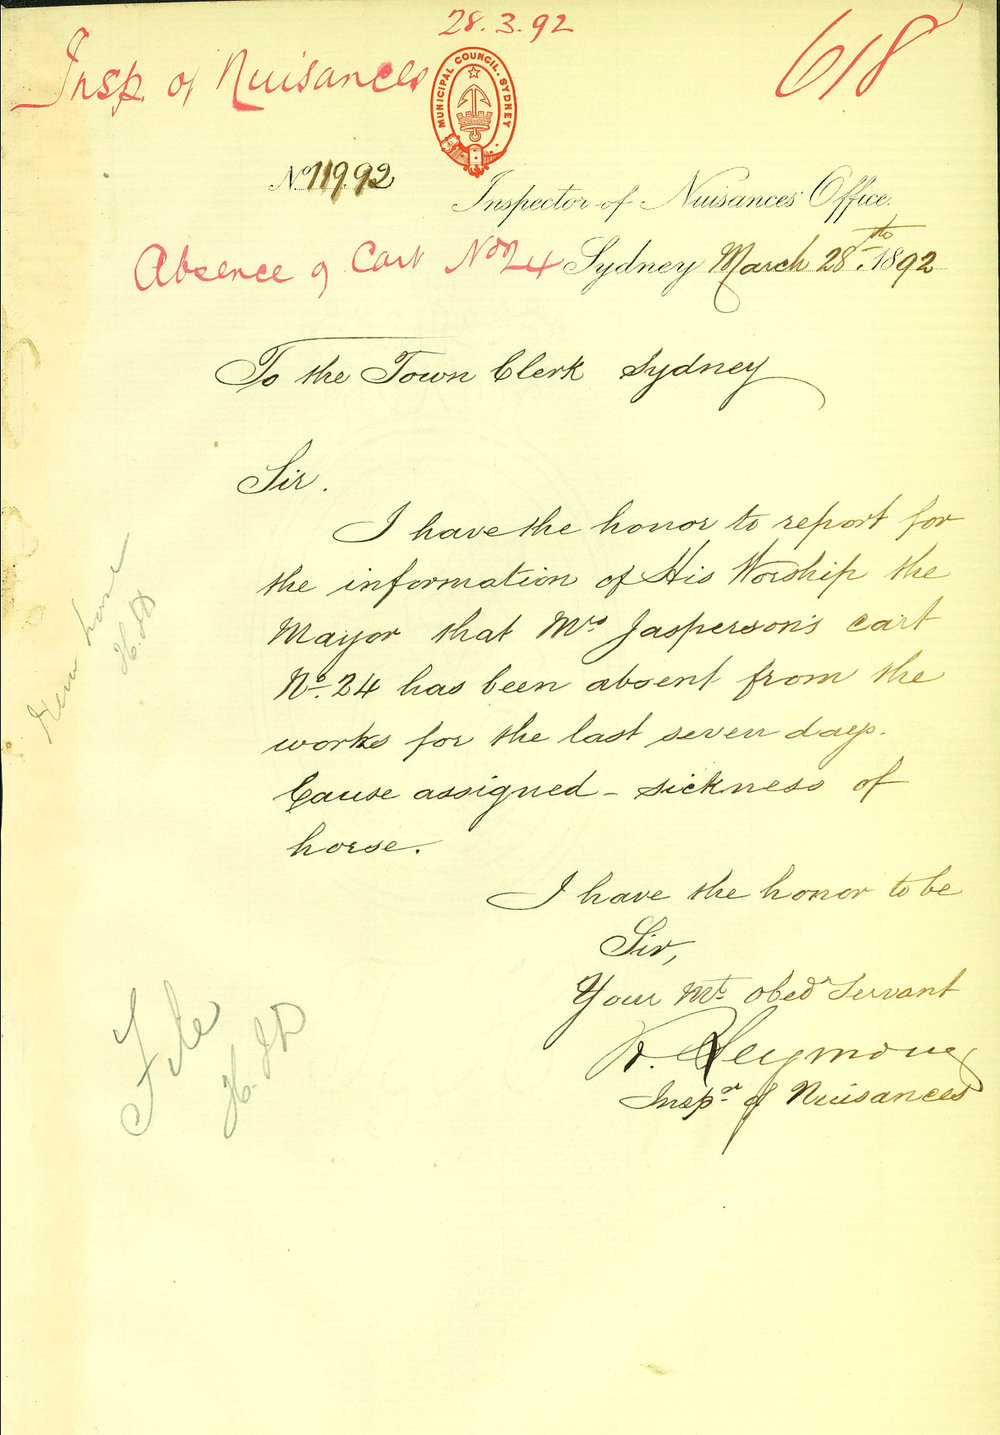 28.3.92
Insp. of Nuisances
618
MUNICIPAL COUNCIL. SYDNEY
No 119.92
Inspector of Nuisances' Office.
Absence of Cart No 24
Sydney March 28th 1892
To the Town Clerk Sydney
Sir.
I have the honor to report for
the information of His Worship the
Mayor that Mrs Jasperson's cart
No. 24 has been absent from the
works for the last seven days.
Cause assigned - sickness of
horse.
I have the honor to be
Sir,
Your Mt. Obedt Servant
R. Seymour
Inspor of Nuisances
File